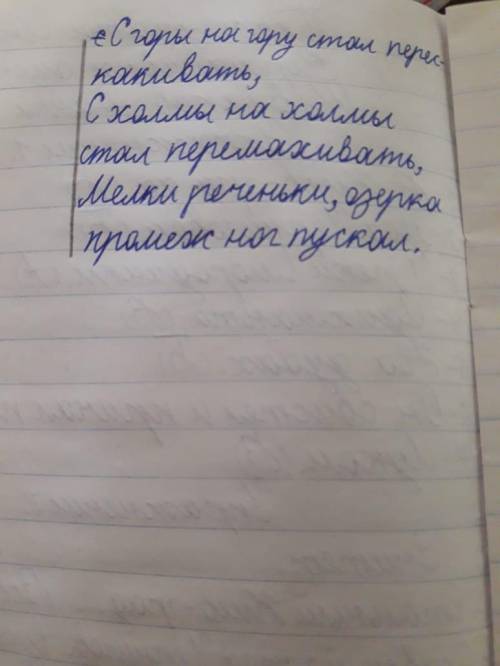 С горы на гору стал перес-
какивать,
С холмы на холмы
стал перемахивать,
Мелки реченьки, озерка
промеж ног пускал.